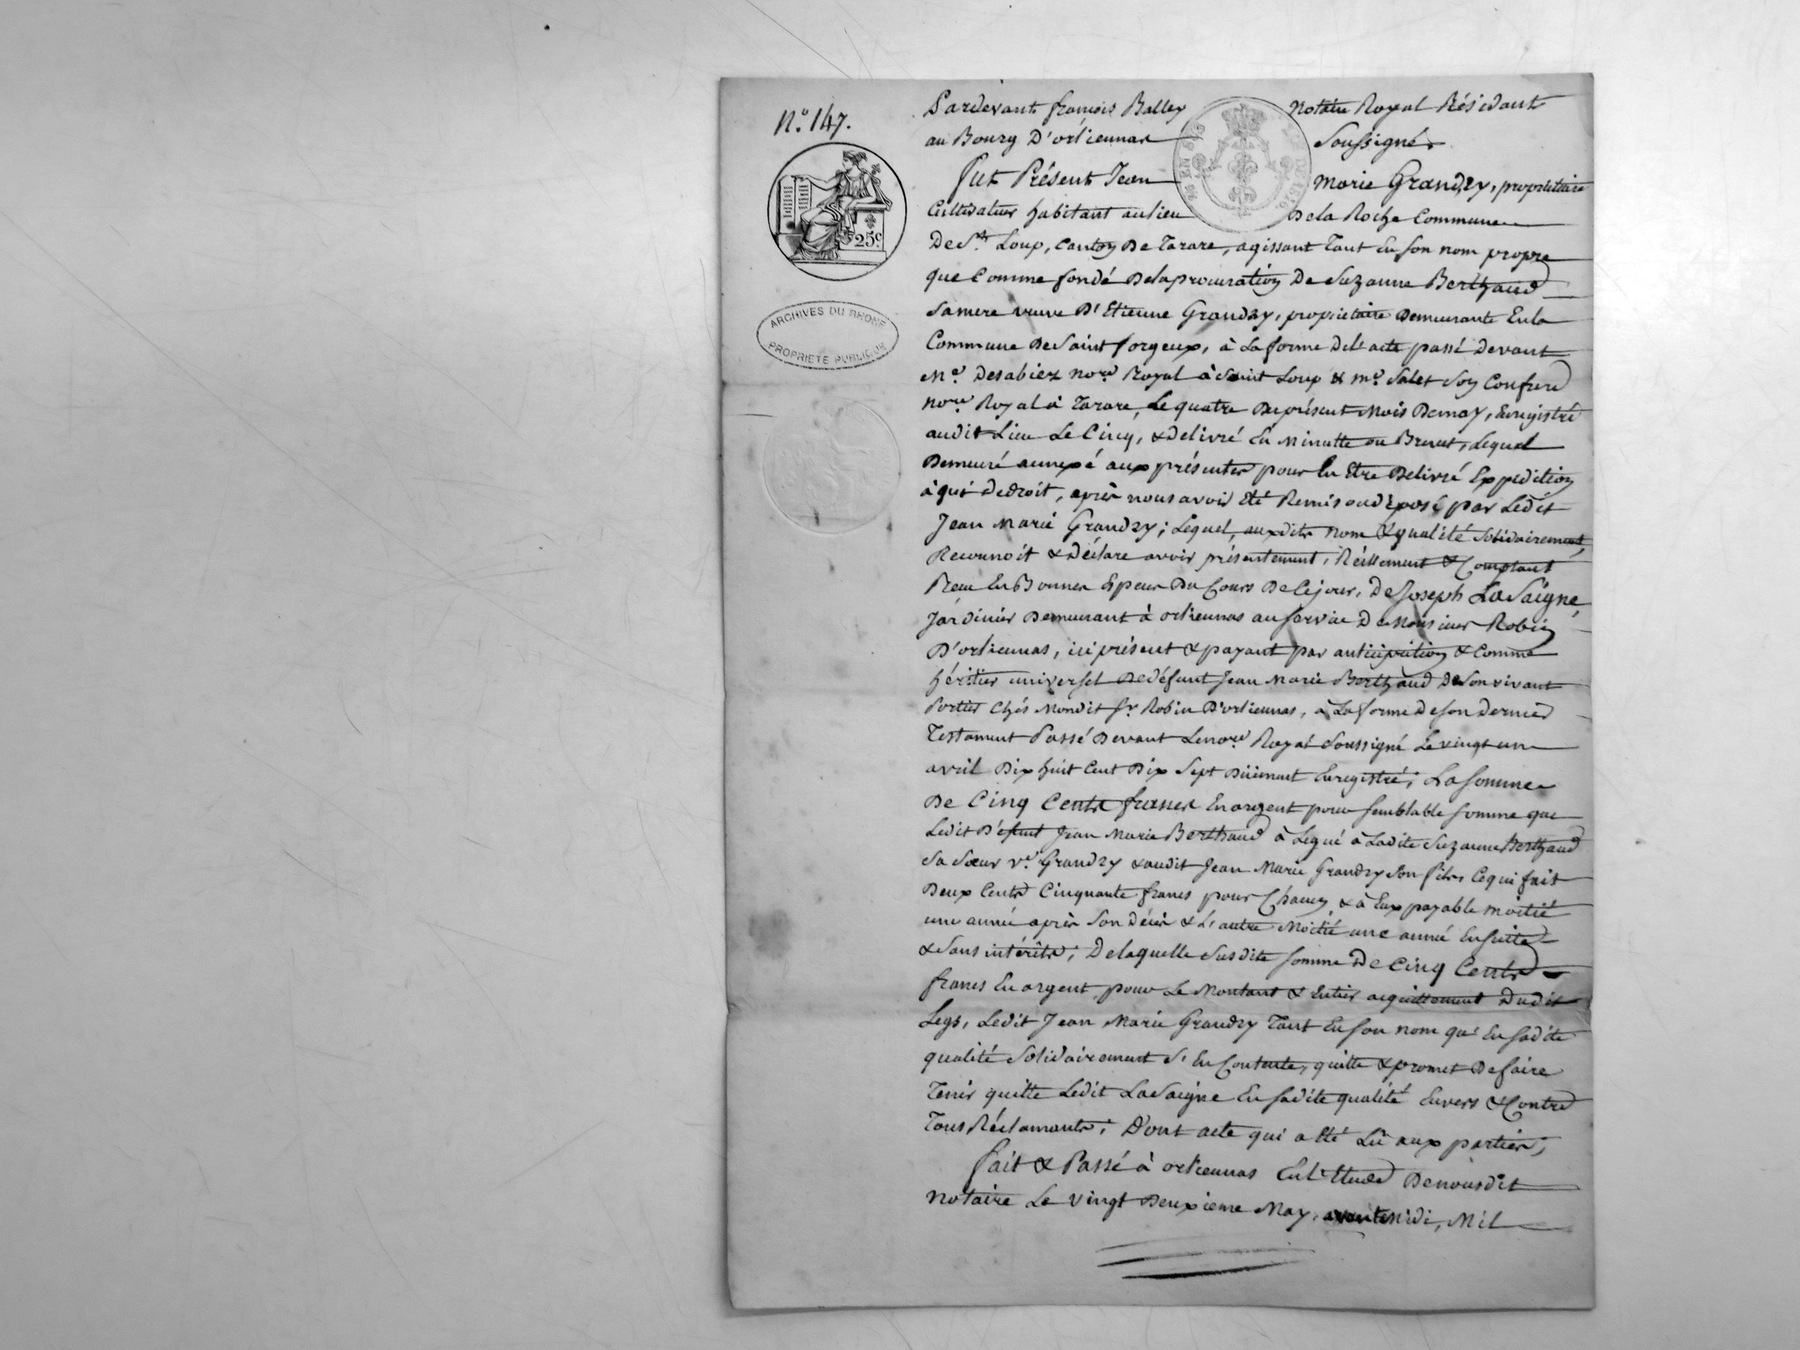 N.° 147.
25c
ARCHIVES DU RHONE
PROPRIÉTÉ PUBLIQUE
Pardevant françois Balley Notaire Royal Résidant
au Bourg D'orliennas Soussigné,
fut Présent Jean Marie Grandry, propriétaire
Cultivateur habitant au lieu De la Roche Commune
De St. Loup, Canton De Tarare, agissant Tant En son nom propre
que Comme fondé De la procuration De Suzanne Berthaud
Sa mere veuve D'Etienne Grandry, propriétaire Demeurante En la
Commune De Saint forgeux, à La forme De l'acte passé Devant
Me. Desabiez nore. Royal à Saint Loup & me. Salet Son Confrere
nore. Royal à Tarare, Le quatre Du présent Mois De may, Enregistré
audit Lieu Le Cinq, & Delivré En Minutte ou Brevet, Lequel
Demeuré annexé aux présentes pour En Etre Delivré Expedition
à qui De droit, après nous avoir Eté Remis ou déposé par Ledit
Jean Marie Grandry; Lequel, auxdits nom & qualité Solidairement,
Reconnoit & Déclare avoir présentement, Réellement & Comptant
Reçu En Bonnes Especes Du Cours De Ce jour, De Joseph LaSaigne,
Jardinier Demeurant à orliennas au Service De Monsieur Robin
D'orliennas, ici présent & payant par anticipation & Comme
héritier universel De défunt Jean Marie Berthaud De son vivant
Portier Chés Mondit Sr. Robin D'orliennas, à La forme De son dernier
Testament Passé Devant Le nore. Royal Soussigné Le vingt un
avril Dix huit Cent Dix Sept Düement Enregistré; La Somme
De Cinq Cents francs En argent pour Semblable Somme que
Ledit Défunt Jean Marie Berthaud à Legué à Ladite Suzanne Berthaud
Sa Sœur ve. Grandry & audit Jean Marie Grandry Son fils, Ce qui fait
Deux Cents Cinquante francs pour Chacun, & à Eux payable moitié
une année après Son Décès & L'autre Moitié une année Ensuite
& Sans intérêts; De laquelle Susdite Somme De Cinq Cents
francs En argent, pour Le Montant & Entier acquittement Dudit
Legs, Ledit Jean Marie Grandry Tant En Son nom qu'En Sadite
qualité Solidairement S'En Contente, quitte & promet De faire
Tenir quitte Ledit LaSaigne En Sadite qualité Envers & Contre
Tous Réclamants; D'ont acte qui a Eté Lû aux parties;
fait & Passé à orliennas En l'Etude De nousdit
notaire Le vingt Deuxieme May, avant Midi, Mil